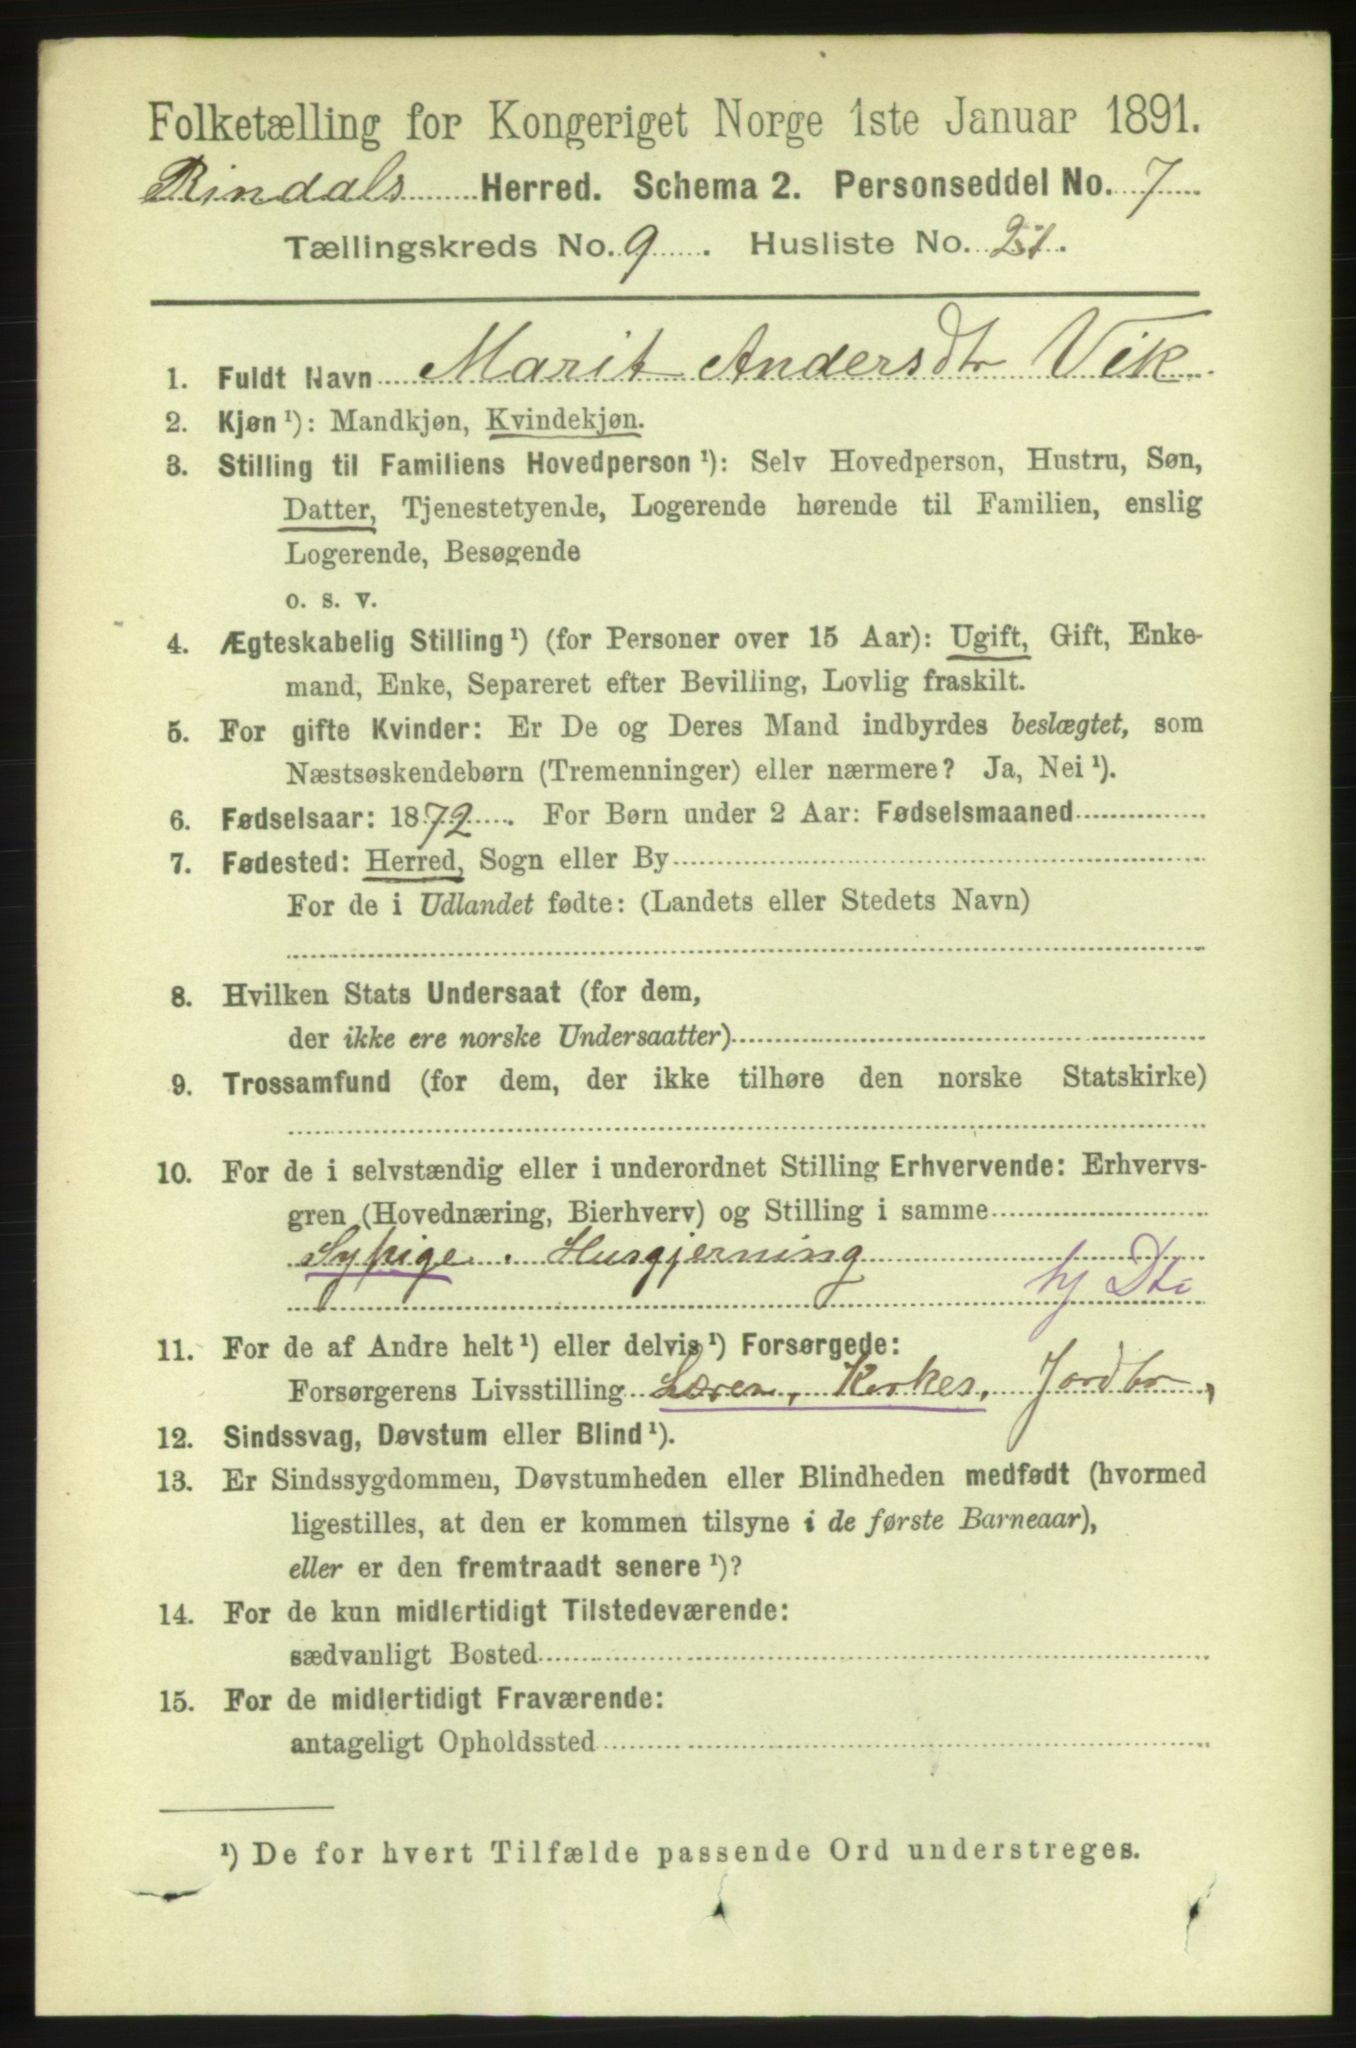 Folketælling for Kongeriget Norge 1ste Januar 1891.
Rindals Herred. Schema 2. Personseddel No. 7
Tællingskreds No. 9. Husliste No. 21.
1. Fuldt Navn Marit Andersdtr Vik
2. Kjøn ¹): Mandkjøn, Kvindekjøn.
3. Stilling til Familiens Hovedperson ¹): Selv Hovedperson, Hustru, Søn,
Datter, Tjenestetyende, Logerende hørende til Familien, enslig
Logerende, Besøgende
o. s. v.
4. Ægteskabelig Stilling ¹) (for Personer over 15 Aar): Ugift, Gift, Enke-
mand, Enke, Separeret efter Bevilling, Lovlig fraskilt.
5. For gifte Kvinder: Er De og Deres Mand indbyrdes beslægtet, som
Næstsøskendebørn (Tremenninger) eller nærmere? Ja, Nei ¹).
6. Fødselsaar: 1872. For Børn under 2 Aar: Fødselsmaaned
7. Fødested: Herred, Sogn eller By
For de i Udlandet fødte: (Landets eller Stedets Navn)
8. Hvilken Stats Undersaat (for dem,
der ikke ere norske Undersaatter)
9. Trossamfund (for dem, der ikke tilhøre den norske Statskirke)
10. For de i selvstændig eller i underordnet Stilling Erhvervende: Erhvervs-
gren (Hovednæring, Bierhverv) og Stilling i samme
Sypige. Husgjerning
hj Dtr
11. For de af Andre helt ¹) eller delvis ¹) Forsørgede:
Forsørgerens Livsstilling Lærer, Kirkes, Jordbr,
12. Sindssvag, Døvstum eller Blind ¹).
13. Er Sindssygdommen, Døvstumheden eller Blindheden medfødt (hvormed
ligestilles, at den er kommen tilsyne i de første Barneaar),
eller er den fremtraadt senere ¹)?
14. For de kun midlertidigt Tilstedeværende:
sædvanligt Bosted
15. For de midlertidigt Fraværende:
antageligt Opholdssted
¹) De for hvert Tilfælde passende Ord understreges.